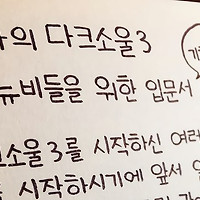 의 다크소울3
뉴비들을 위한 입문서
소울3를 시작하신 여러
시작하시기에 앞서 일